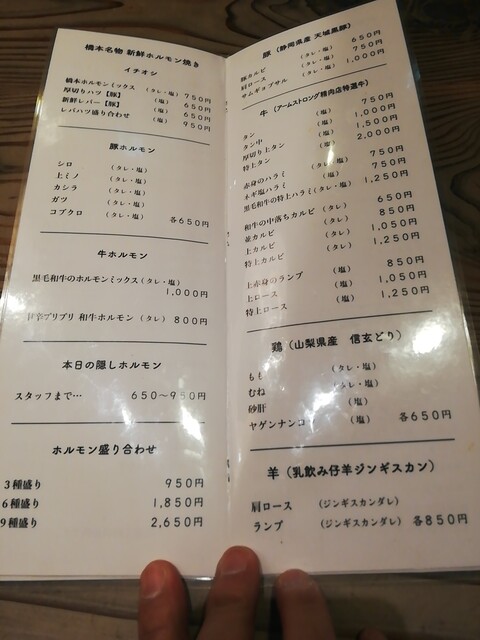 橋本名物 新鮮ホルモン焼き
イチオシ
橋本ホルモンミックス (タレ・塩) 750円
厚切りハツ【豚】 (塩) 650円
新鮮レバー【豚】 (塩) 650円
レバハツ盛り合わせ 950円
豚ホルモン
シロ (タレ・塩)
上ミノ (タレ・塩)
カシラ (タレ・塩)
ガツ (タレ・塩)
コブクロ (タレ・塩) 各650円
牛ホルモン
黒毛和牛のホルモンミックス(タレ・塩)
1,000円
プリプリ 和牛ホルモン (タレ) 800円
本日の隠しホルモン
スタッフまで… 650〜950円
ホルモン盛り合わせ
3種盛り 950円
6種盛り 1,850円
9種盛り 2,650円
豚 (静岡県産 天城黒豚)
豚カルビ (タレ・塩) 650円
肩ロース (タレ・塩) 750円
サムギョプサル (塩) 1,000円
牛 (アームストロング精肉店特選牛)
タン (塩) 750円
タン中 (塩) 1,000円
厚切り上タン (塩) 1,500円
特上タン (塩) 2,000円
赤身のハラミ (タレ・塩) 750円
ネギ塩ハラミ (塩) 750円
黒毛和牛の特上ハラミ(タレ・塩) 1,250円
和牛の中落ちカルビ (タレ) 650円
並カルビ (タレ) 850円
上カルビ (タレ) 1,050円
特上カルビ (タレ) 1,250円
上赤身のランプ (塩) 850円
上ロース (塩) 1,050円
特上ロース (塩) 1,250円
鶏 (山梨県産 信玄どり)
もも (タレ・塩)
むね (タレ・塩)
砂肝 (塩)
ヤゲンナンコツ (塩) 各650円
羊 (乳飲み仔羊ジンギスカン)
肩ロース (ジンギスカンダレ)
ランプ (ジンギスカンダレ) 各850円